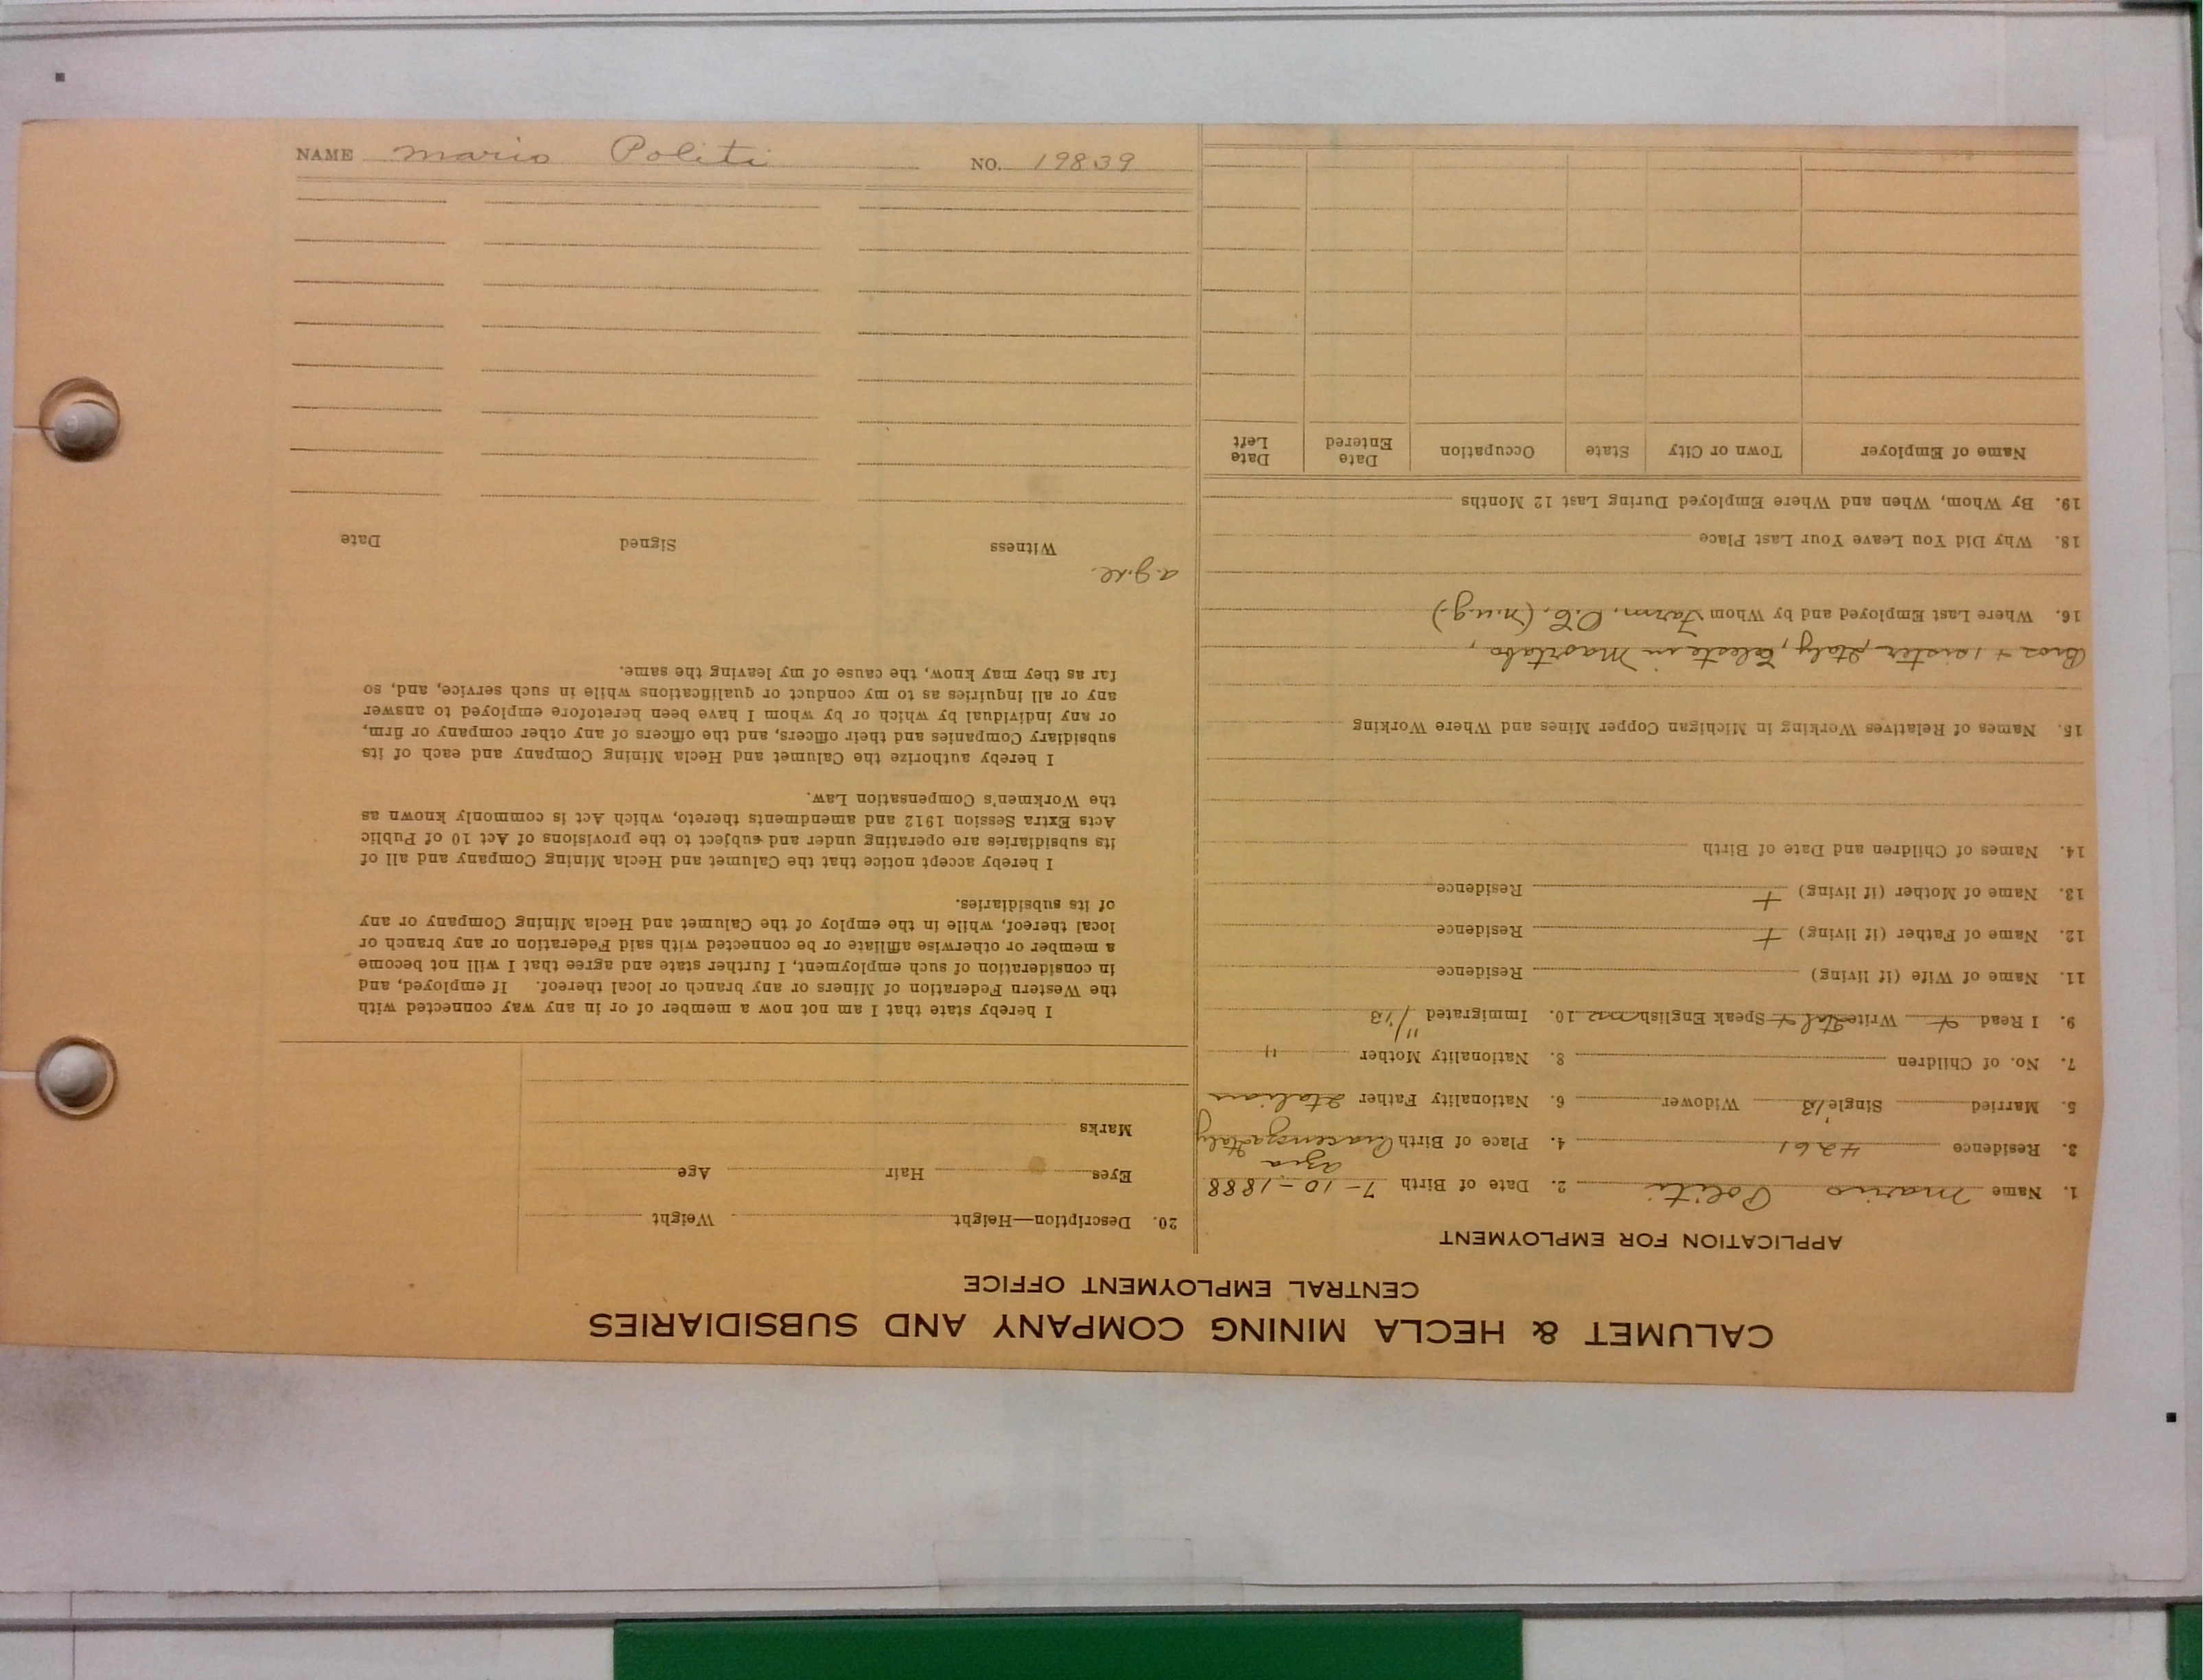 NAME Mario Politi NO. 19839
CALUMET & HECLA MINING COMPANY AND SUBSIDIARIES
CENTRAL EMPLOYMENT OFFICE
APPLICATION FOR EMPLOYMENT
1. Name Mario Politi 2. Date of Birth 7-10-1888
3. Residence 4261 4. Place of Birth Italy
5. Married Single Widower 6. Nationality Father Italian
7. No. of Children 8. Nationality Mother "
9. I Read + Write Ital + Speak English 10. Immigrated 11/13
11. Name of Wife (if living) Residence
12. Name of Father (if living) + Residence
13. Name of Mother (if living) + Residence
14. Names of Children and Date of Birth
15. Names of Relatives Working in Michigan Copper Mines and Where Working
Bros + 1 sister Italy, Celeste in
16. Where Last Employed and by Whom Farm, (n.u.g.)
18. Why Did You Leave Your Last Place
19. By Whom, When and Where Employed During Last 12 Months
Name of Employer Town or City State Occupation Date Entered Date Left
20. Description—Height Weight
Eyes Hair Age
Marks
I hereby state that I am not now a member of or in any way connected with
the Western Federation of Miners or any branch or local thereof. If employed, and
in consideration of such employment, I further state and agree that I will not become
a member or otherwise affiliate or be connected with said Federation or any branch or
local thereof, while in the employ of the Calumet and Hecla Mining Company or any
of its subsidiaries.
I hereby accept notice that the Calumet and Hecla Mining Company and all of
its subsidiaries are operating under and subject to the provisions of Act 10 of Public
Acts Extra Session 1912 and amendments thereto, which Act is commonly known as
the Workmen's Compensation Law.
I hereby authorize the Calumet and Hecla Mining Company and each of its
subsidiary Companies and their officers, and the officers of any other company or firm,
or any individual by which or by whom I have been heretofore employed to answer
any or all inquiries as to my conduct or qualifications while in such service, and, so
far as they may know, the cause of my leaving the same.
Witness Signed Date